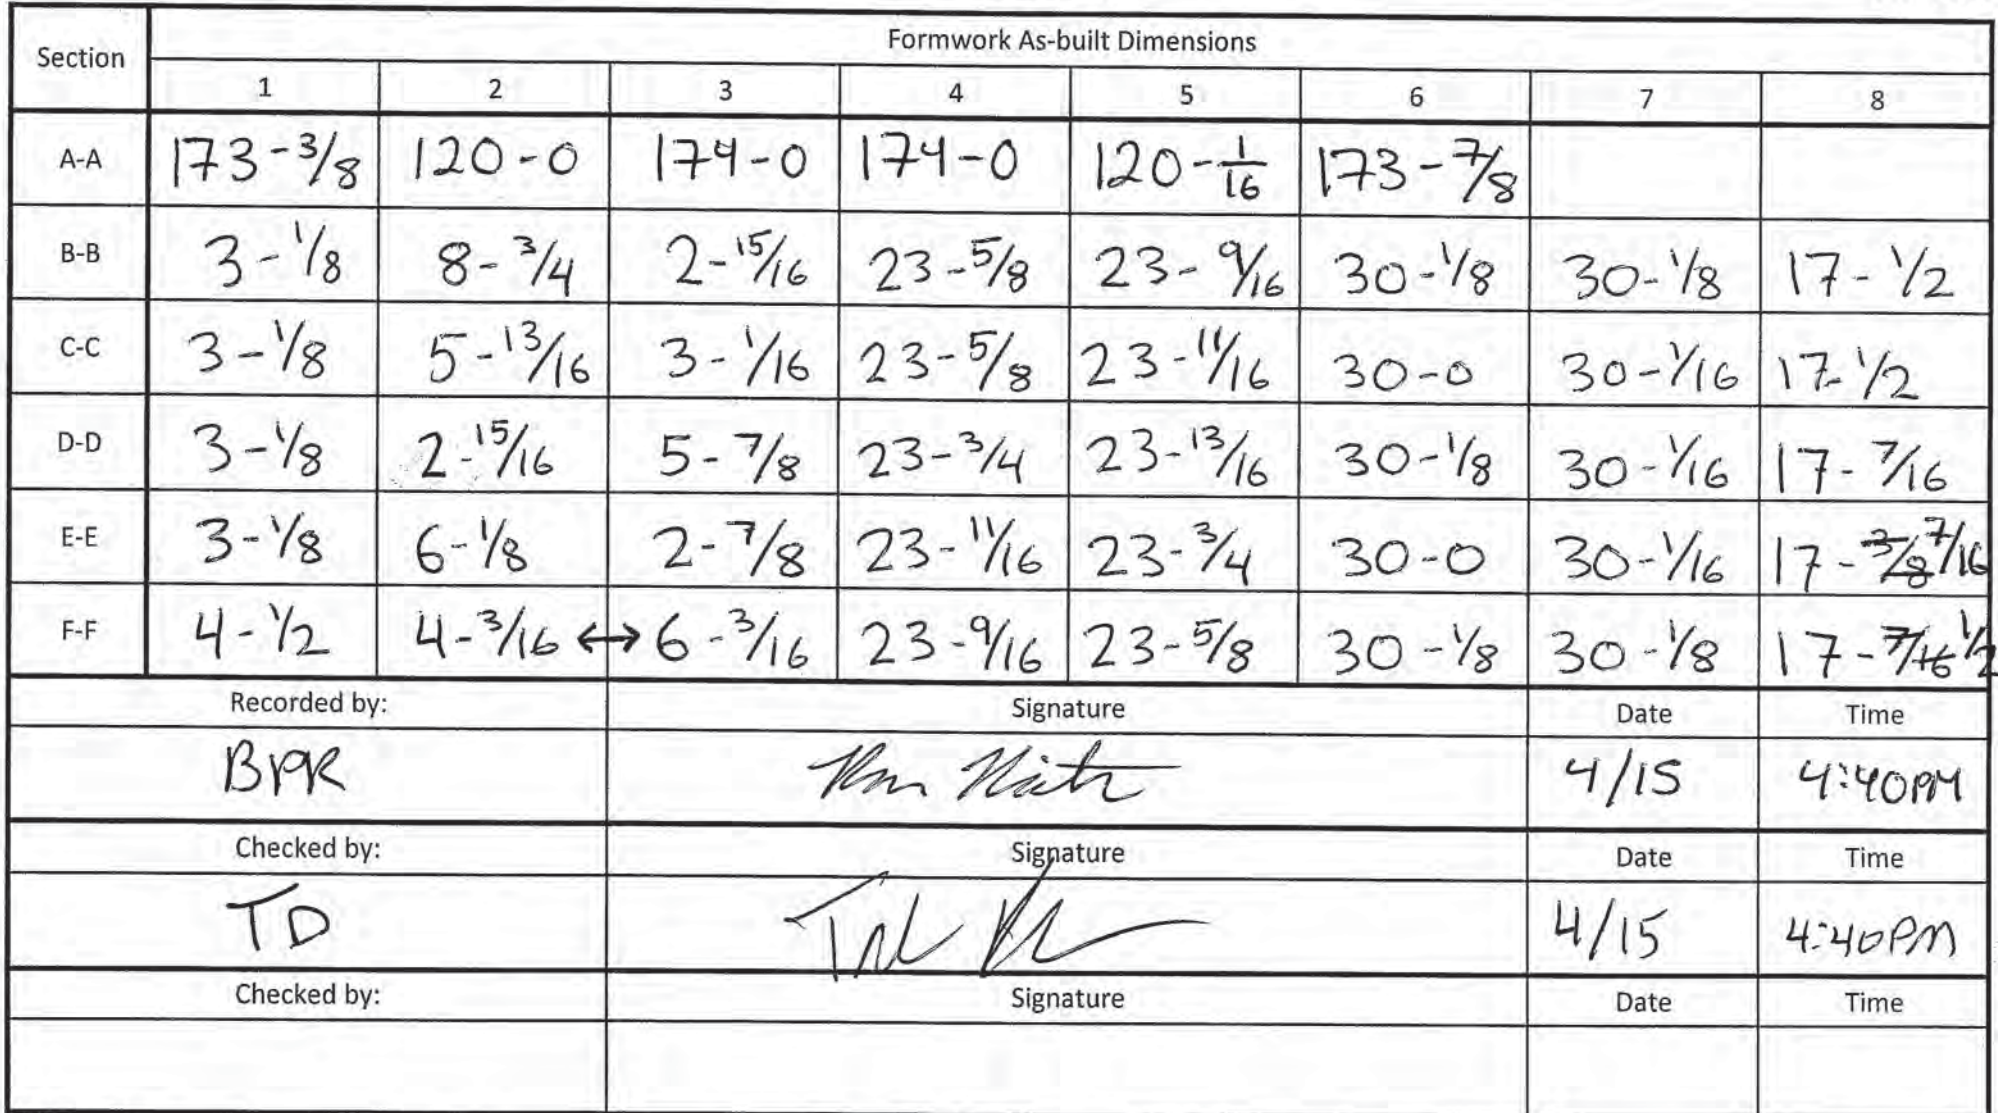 Section Formwork As-built Dimensions
1 2 3 4 5 6 7 8
A-A 173-3/8 120-0 174-0 174-0 120-1/16 173-7/8
B-B 3-1/8 8-3/4 2-15/16 23-5/8 23-9/16 30-1/8 30-1/8 17-1/2
C-C 3-1/8 5-13/16 3-1/16 23-5/8 23-11/16 30-0 30-1/16 17-1/2
D-D 3-1/8 2-15/16 5-7/8 23-3/4 23-13/16 30-1/8 30-1/16 17-7/16
E-E 3-1/8 6-1/8 2-7/8 23-11/16 23-3/4 30-0 30-1/16 17-3/8 7/16
F-F 4-1/2 4-3/16 ↔ 6-3/16 23-9/16 23-5/8 30-1/8 30-1/8 17-7/16 1/2
Recorded by: Signature Date Time
BPR 4/15 4:40PM
Checked by: Signature Date Time
TD 4/15 4:40PM
Checked by: Signature Date Time